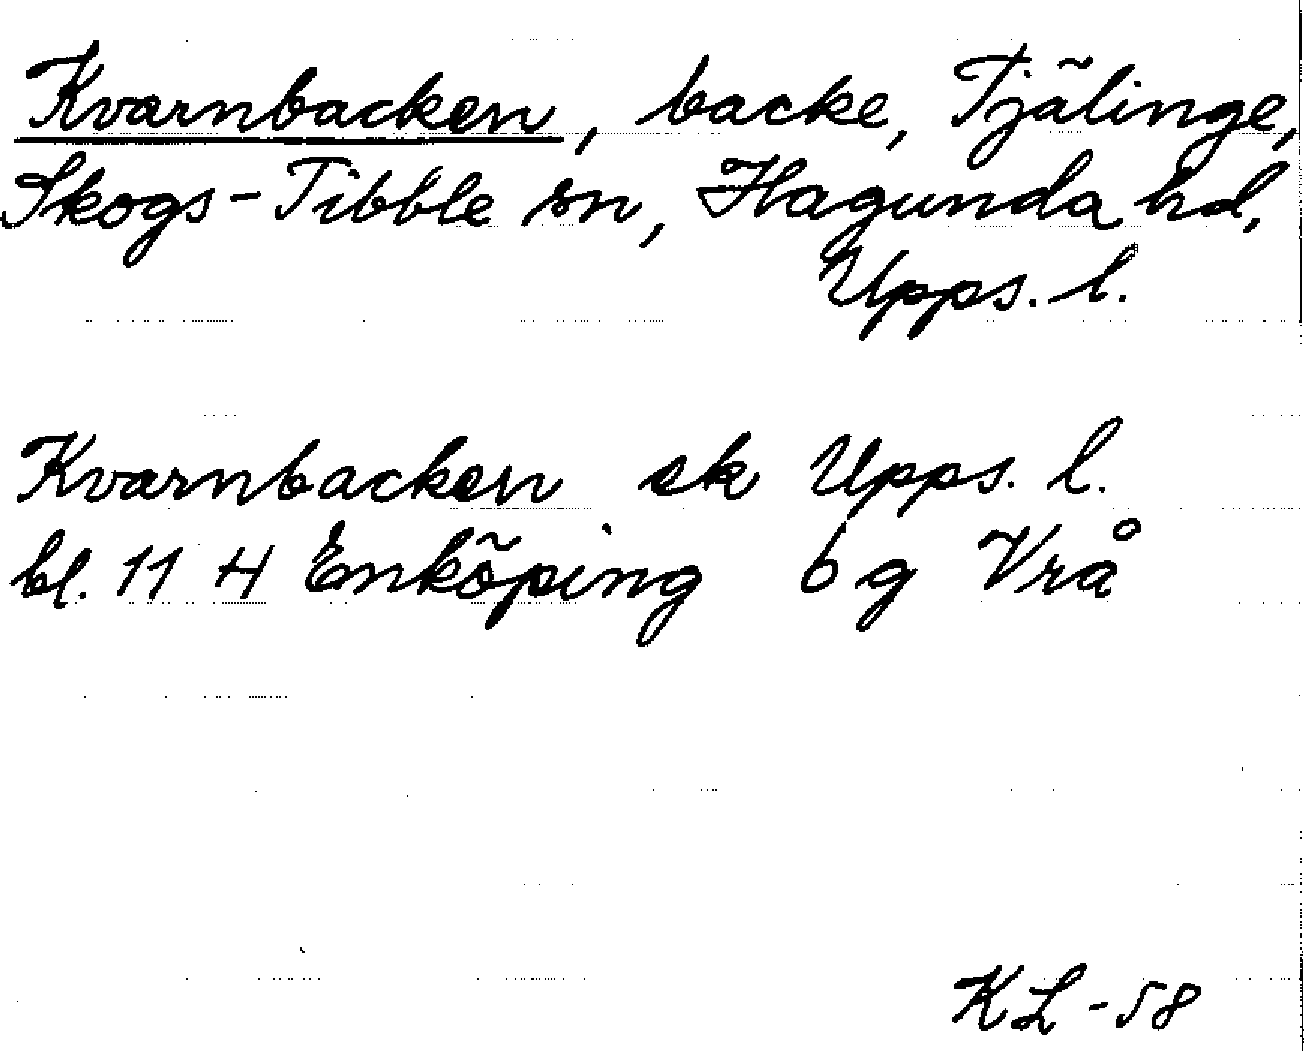 Kvarnbacken, backe, Tjälinge,
Skogs-Tibble sn, Hagunda hd,
Upps. l.
Kvarnbacken ek Upps. l.
bl. 11 H Enköping 6 g Vrå
KL -58